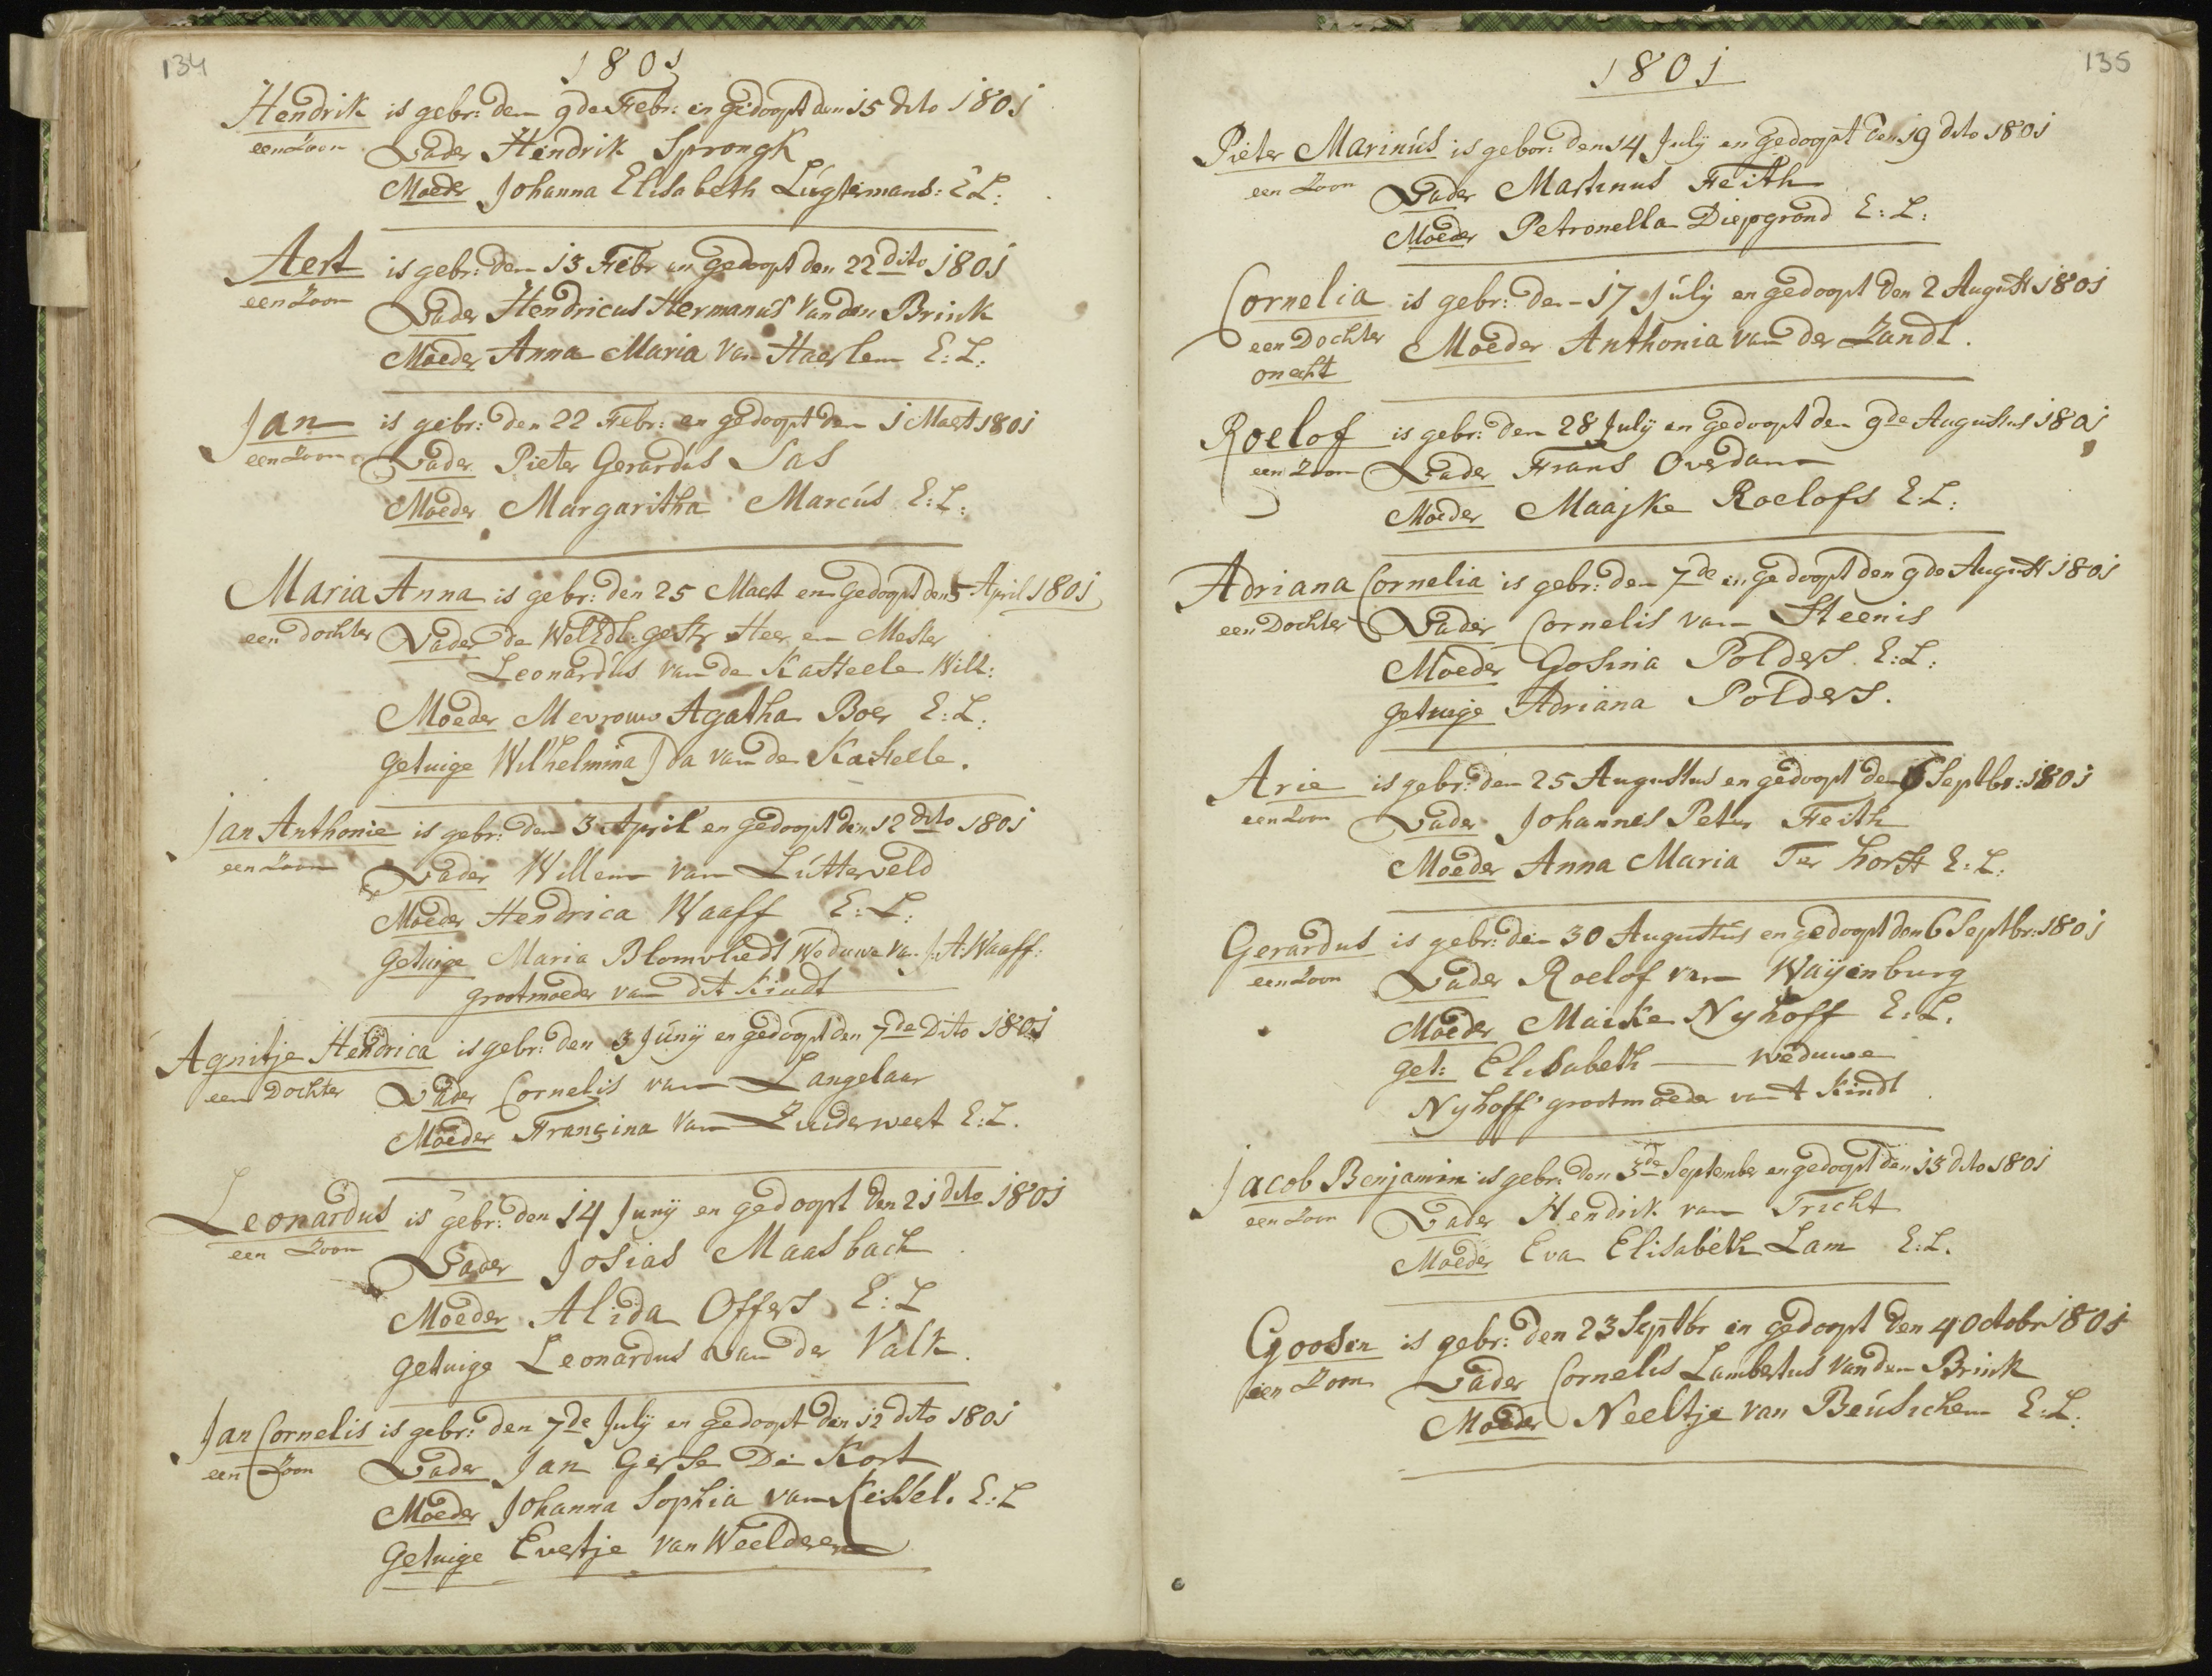 134
1801
Hendrik is gebr: den 9de Febr: en gedoopt den 15 dito 1801
een Zoon Vader Hendrik Sprongk
Moeder Johanna Elisabeth Lúgtermans: E L:
Aert is gebr: den 13 Febr en gedoopt den 22 dito 1801
een Zoon Vader Hendricus Hermanús Van den Brink
Moeder Anna Maria Van Haerlem E: L:
Jan is gebr: den 22 Febr: en gedoopt den 1 Maert 1801
een Zoon Vader Pieter Gerardús Sas
Moeder Margaritha Marcús E: L:
Maria Anna is gebr: den 25 Maert en Gedoopt den 5 April 1801
een dochter Vader de Weledl: gestr Heer en Mester
Leonardús van de Kasteele Will:
Moeder Mevrouw Agatha Boer E: L:
getuige Wilhelmina Ida van de Kasteele.
Jan Anthonie is gebr: den 3 April en gedoopt den 12 dito 1801
een Zoon Vader Willem van Lútterveld
Moeder Hendrica Waaff E: L:
getuige Maria Blomvliedt Weduwe Van J: A: Waaff:
grootmoeder van dit Kindt
Agnitje Hendrica is gebr: den 3 Júnij en gedoopt den 7de Dito 1801
een Dochter Vader Cornelis van Langelaar
Moeder Francina Van Zuiderweert E: L.
Leonardus is gebr: den 14 Junij en gedoopt den 21 dito 1801
een Zoon Vader Josias Maasbach
Moeder Alida Offers E: L
getuige Leonardus van der Valk.
Jan Cornelis is gebr: den 7de Julij en gedoopt den 12 dito 1801
een Zoon Vader Jan Gerse De Kort
Moeder Johanna Sophia van Kessel. E: L
Getuige Evertje van Weelderen
135
1801
Pieter Marinús is gebor: den 14 Julij en gedoopt den 19 dito 1801
een Zoon Vader Martinus Feith
Moeder Petronella Diepgrond E: L:
Cornelia is gebr: den 17 Júlij en gedoopt den 2 August 1801
een Dochter Moeder Anthonia van der Zandt.
onecht
Roelof is gebr: den 28 Julij en gedoopt den 9de Augustus 1801
een Zoon Vader Frans Overdam
Moeder Maajke Roelofs E: L:
Adriana Cornelia is gebr: den 7de en gedoopt den 9de August 1801
een Dochter Vader Cornelis van Steenis
Moeder Gosina Polders E: L:
getuige Adriana Polders.
Arie is gebr: den 25 Augustus en gedoopt den 6 Septbr: 1801
een Zoon Vader Johannes Peter Feith
Moeder Anna Maria Ter horst E: L:
Gerardus is gebr: den 30 Augustus en gedoopt den 6 Septbr: 1801
een Zoon Vader Roelof van Waijenburg
Moeder Maike Nyhoff E: L.
get: Elisabeth — weduwe
Nyhoff grootmoeder van t Kindt
Jacob Benjamin is gebr: den 3de September en gedoopt den 13 dito 1801
een Zoon Vader Hendrik van Tricht
Moeder Eva Elisabeth Lam E: L.
Goosen is gebr: den 23 Septbr en gedoopt den 4 Octobr 1801
een Zoon Vader Cornelis Lambertus Van den Brink
Moeder Neeltje van Beúsichem E: L: